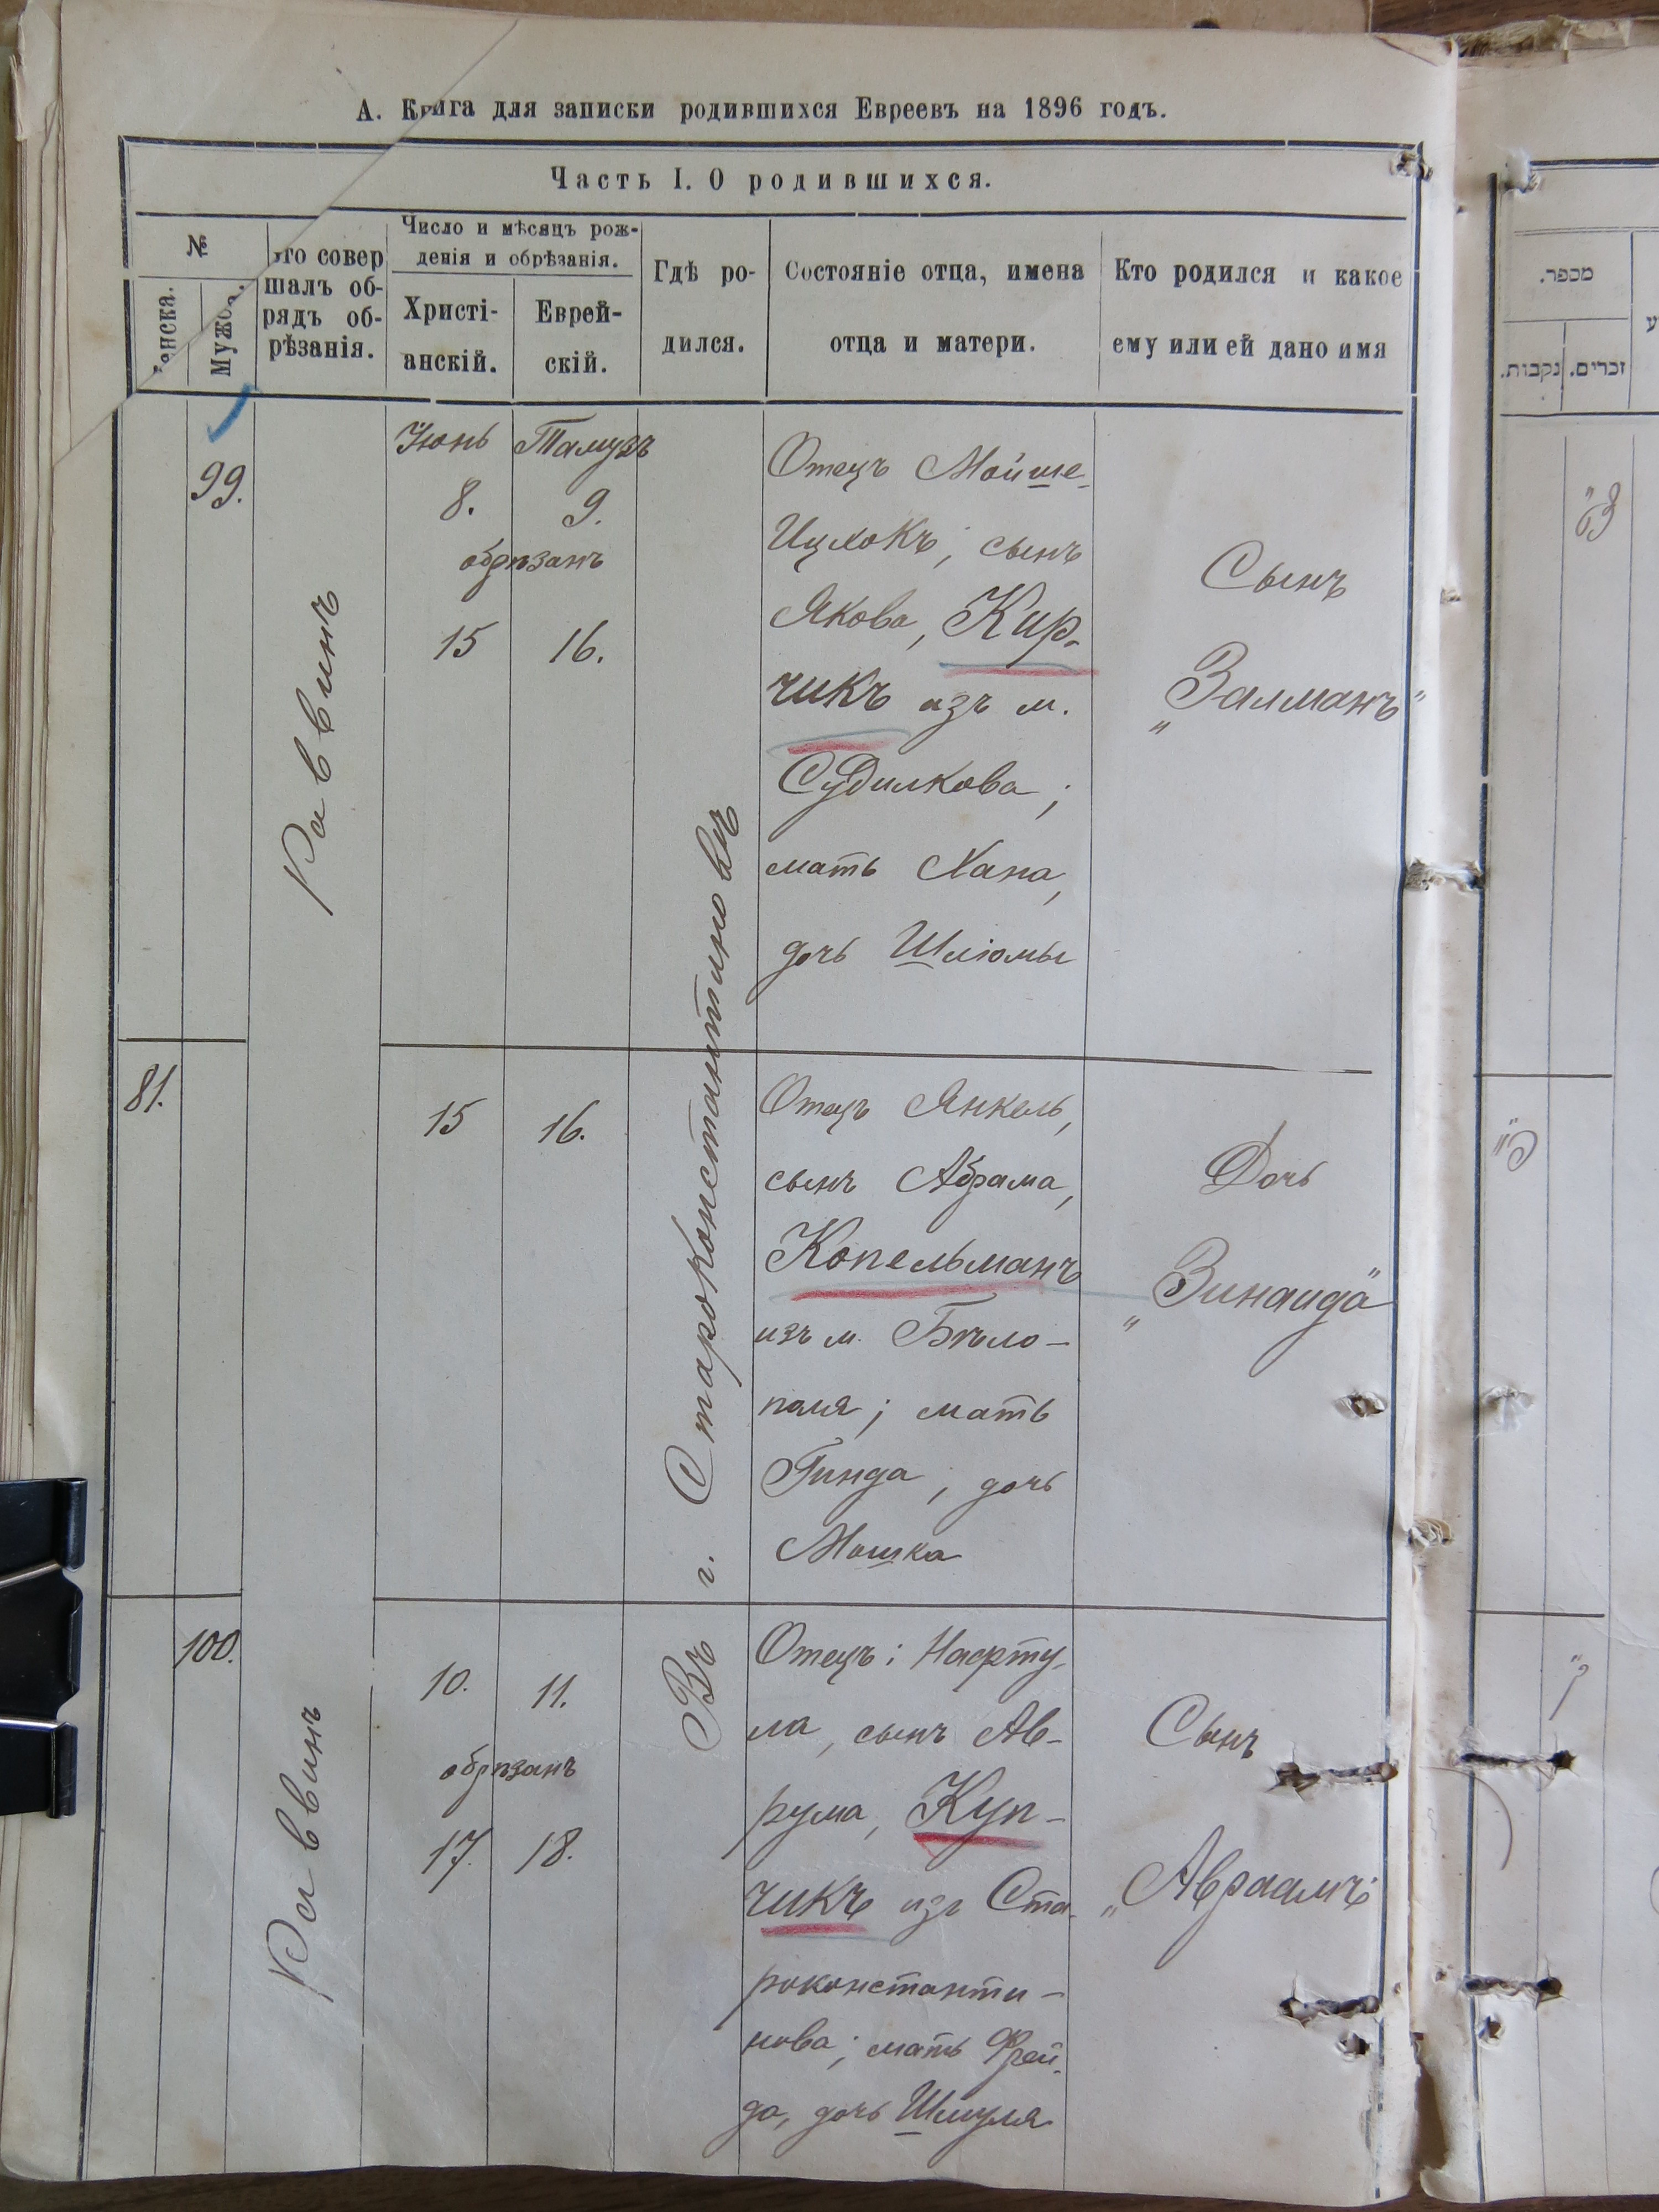 А. Книга для записки родившихся Евреевъ на 1896 годъ.
Часть I. О родившихся.
№
Мужс.
совер
шалъ об-
рядъ об-
рѣзанія.
Число и мѣсяцъ рож-
денія и обрѣзанія.
Христі-
анскій.
Еврей-
скій.
Гдѣ ро-
дился.
Состояніе отца, имена
отца и матери.
Кто родился и какое
ему или ей дано имя
99.
Раввинъ
Іюнь Тамузъ
8. 9.
обрѣзанъ
15 16.
Въ г. Староконстантиновѣ
Отецъ Мойше-
Ицхокъ, сынъ
Якова, Кир-
чикъ изъ м.
Судилкова;
мать Хана,
дочь Шліомы
Сынъ
„Залманъ"
81.
15 16.
Отецъ Янкель,
сынъ Абрама,
Копельманъ
изъ м. Бѣло-
поля; мать
Гинда, дочь
Мошка
Дочь
„Зинаида"
100.
Раввинъ
10. 11.
обрѣзанъ
17. 18.
Отецъ: Нафту-
ла, сынъ Ав-
рума, Куп-
чикъ изъ Ста-
роконстанти-
нова; мать Фрей-
да, дочь Шмуля
Сынъ
„Авраамъ"
מכפר.
זכרים.
נקבות.